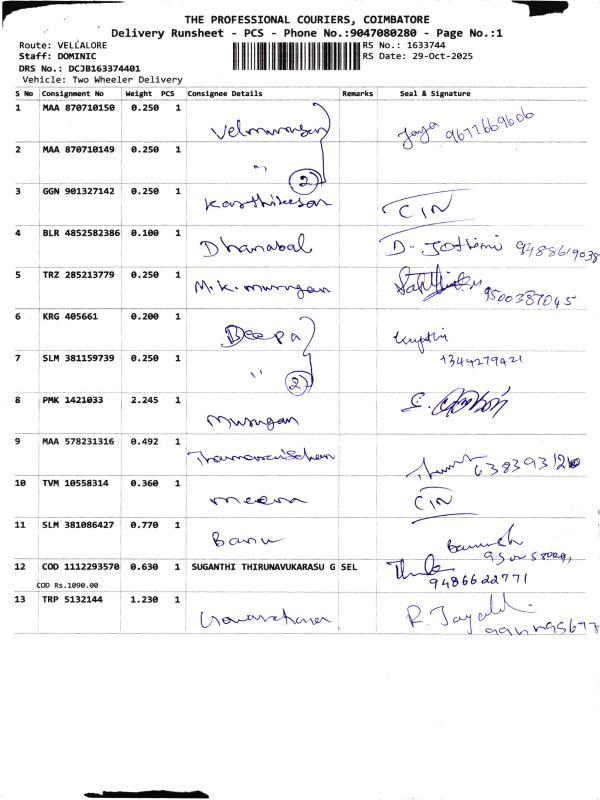 THE PROFESSIONAL COURIERS, COIMBATORE
Delivery Runsheet - PCS - Phone No.:9047080280 - Page No.:1
Route: VELLALORE RS No.: 1633744
Staff: DOMINIC RS Date: 29-Oct-2025
DRS No.: DCJB163374401
Vehicle: Two Wheeler Delivery
S No Consignment No Weight PCS Consignee Details Remarks Seal & Signature
1 MAA 870710150 0.250 1 Velmurugan Jaya 9677669606
2 MAA 870710149 0.250 1 " 2
3 GGN 901327142 0.250 1 Karthikesan CIN
4 BLR 4852582386 0.100 1 Dhanabal D- Jothimi 9488619038
5 TRZ 285213779 0.250 1 M.K. Murugan 9500387045
6 KRG 405661 0.200 1 Deepa
7 SLM 381159739 0.250 1 " 2 7344279421
8 PMK 1421033 2.245 1 Murugan
9 MAA 578231316 0.492 1
10 TVM 10558314 0.360 1 Meena CIN
11 SLM 381086427 0.770 1 Banu
12 COD 1112293570 0.630 1 SUGANTHI THIRUNAVUKARASU G SEL
COD Rs.1090.00 9486622771
13 TRP 5132144 1.230 1 R. Jayald